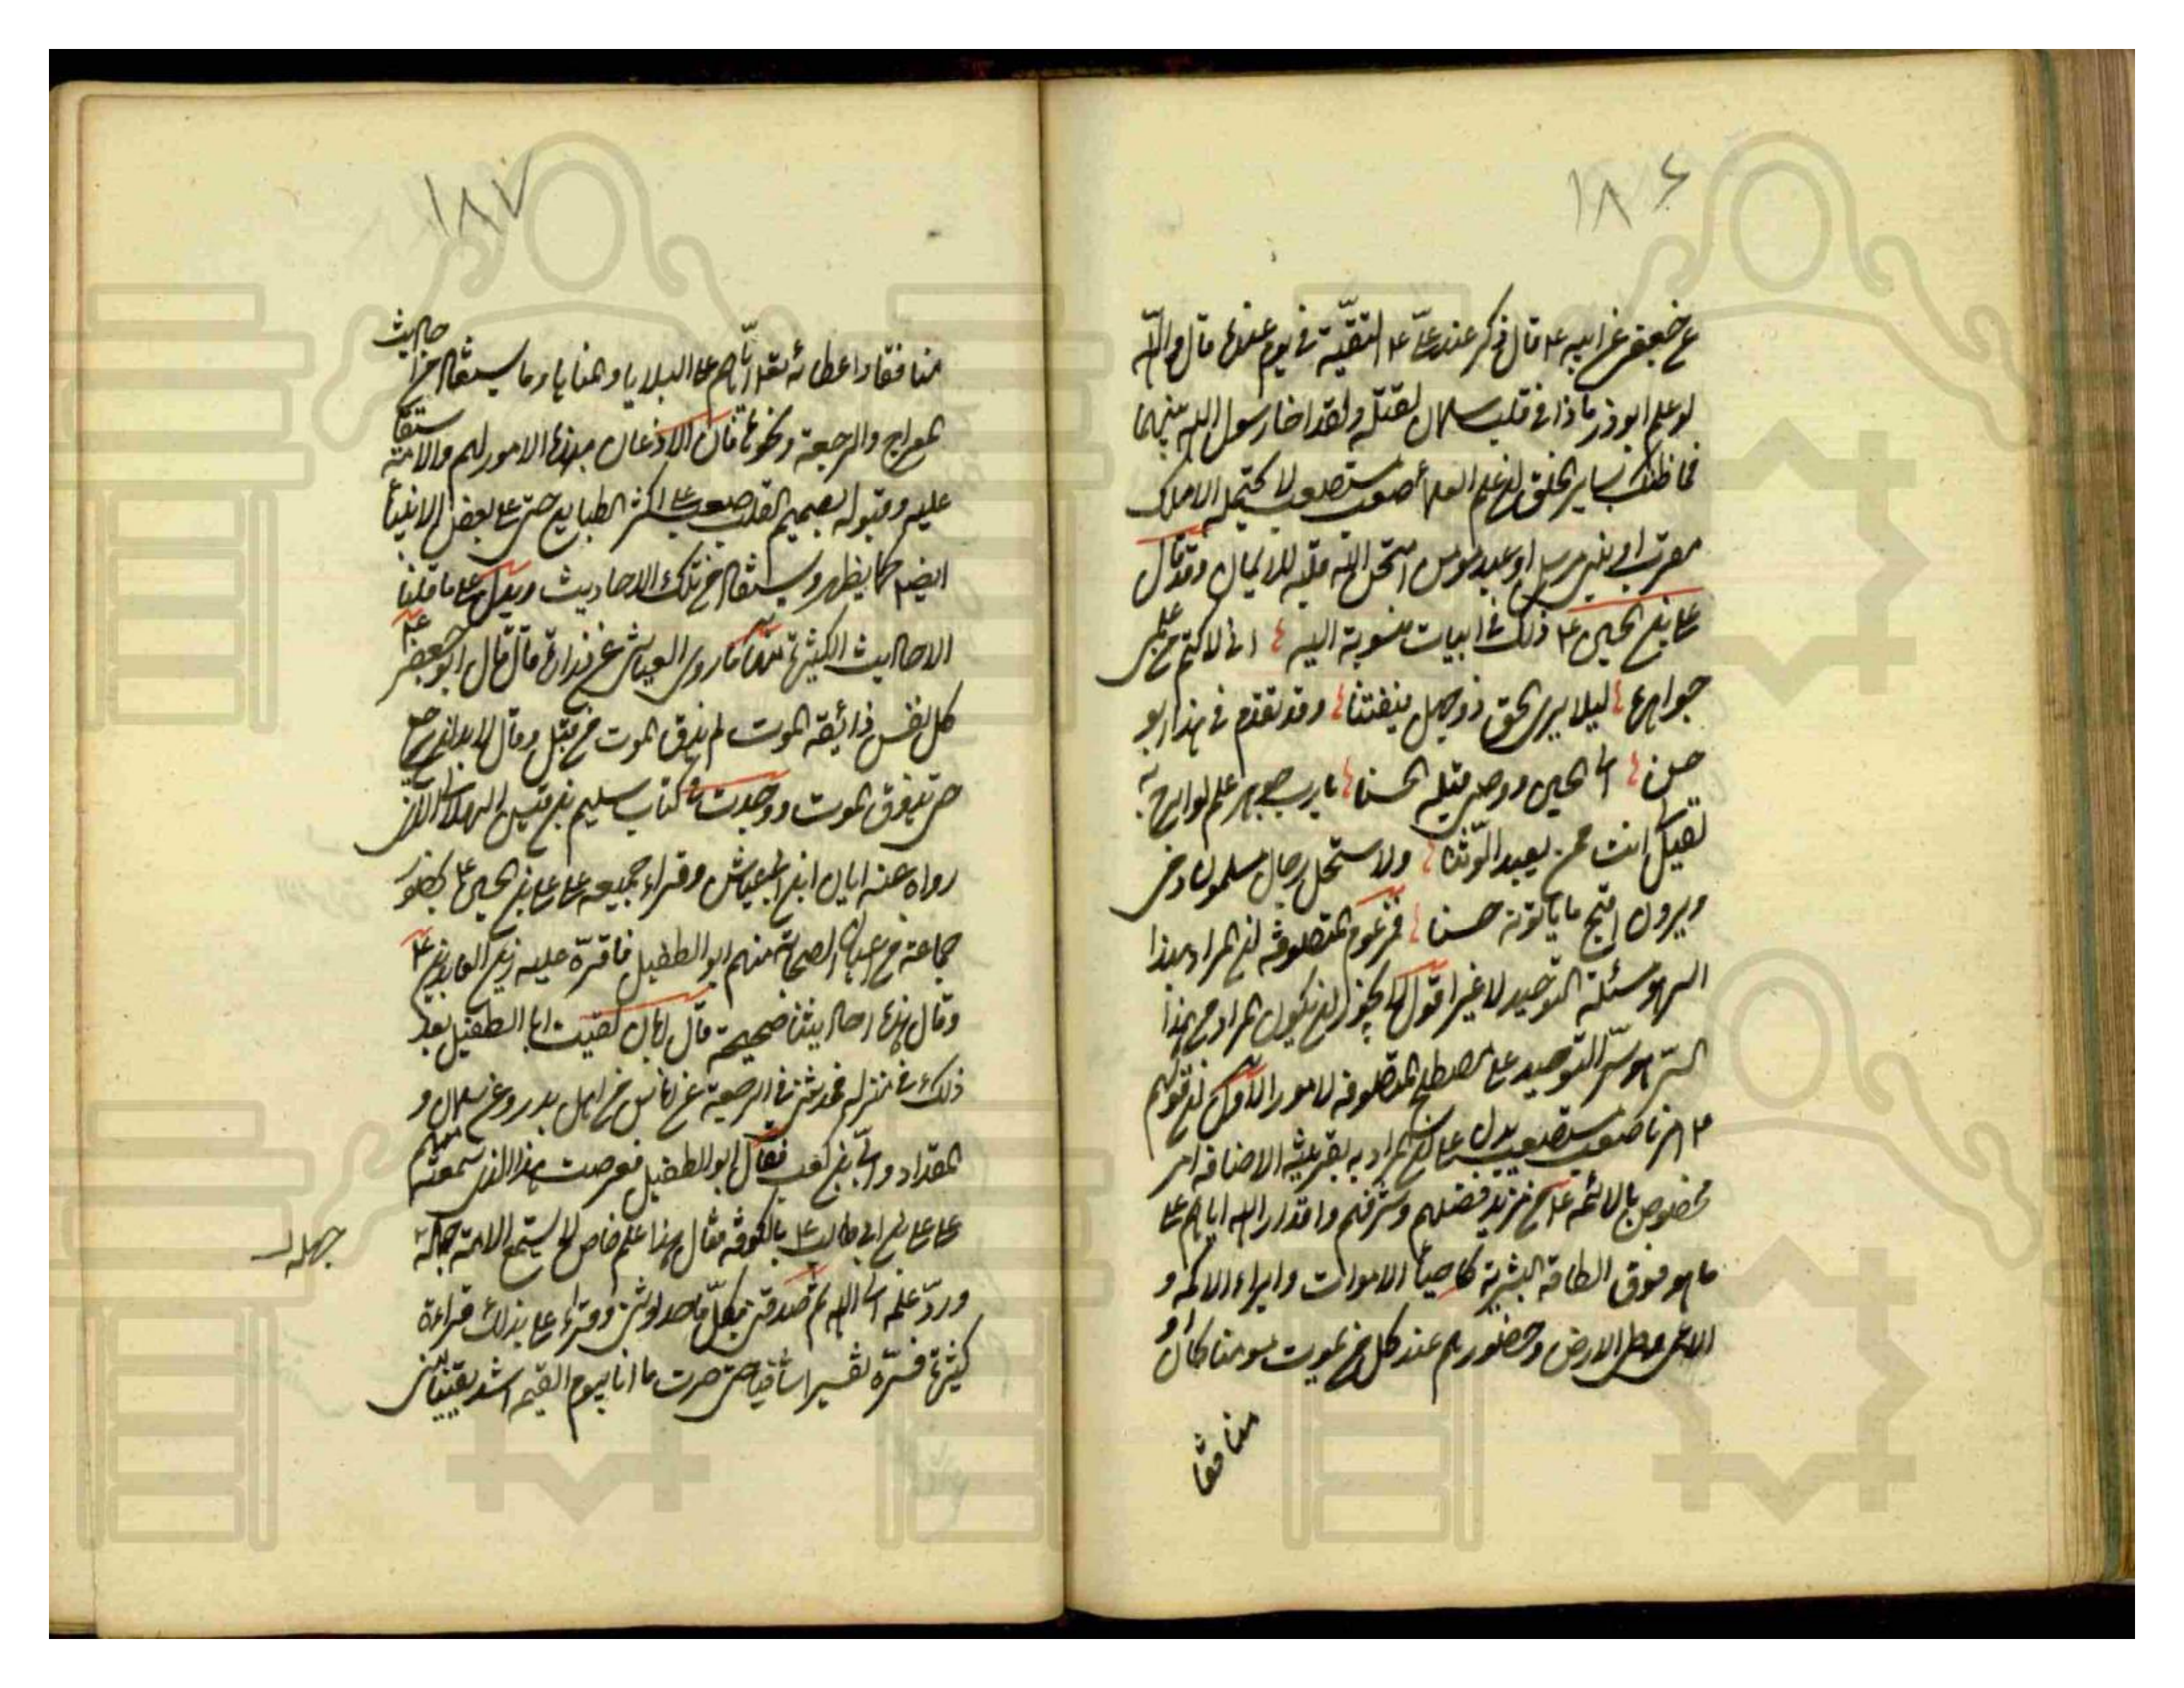 ١٨٦
عن جعفر عن ابيه ع قال ذكر عند علي ع التقية في يوم عنده قال والله
لو علم ابو ذر ما ذا في قلب سلمان لقتله ولقد اخا رسول الله بينهما
فما ظنك بساير الخلق ان علم العلماء صعب مستصعب لا يحتمله الا ملك
مقرب او نبي مرسل او عبد مومن امتحن الله قلبه للايمان وقد قال
علي بن الحسين ع ذلك في ابيات منسوبة اليه اني لاكتم من علمي
جواهره ليلا يرى الحق ذو جهل فيفتتنا وقد تقدم في هذا ابو
حسن الى الحسين ووصى قبله الحسنا يا رب جوهر علم لو ابوح به
لقيل انت ممن يعبد الوثنا ولاستحل رجال مسلمون دمي
ويرون اقبح ما ياتونه حسنا فزعم المتصوفة ان المراد بهذا
السر هو مسئلة التوحيد لا غير اقول لا يجوز ان يكون المراد من هذا
السر هو سر التوحيد على مصطلح المتصوفة لامور الاول ان قولهم
ع امرنا صعب مستصعب يدل على ان المراد به بقرينة الاضافة امر
مخصوص بالائمة ع من مزيد فضلهم وشرفهم واقدار الله اياهم على
ما هو فوق الطاقة البشرية كاحياء الاموات وابراء الاكمه و
الاعمى وطي الارض وحضورهم عند كل من يموت مومنا كان او
منافقا
١٨٧
منافقا واعطائه تعالى اياهم علم البلايا والمنايا وما سيقال من احاديث
المعراج والرجعة ونحوها فان الاذعان بهذه الامور لهم والاستقامة
عليه وقبوله بصميم القلب صعب على اكثر الطبايع حتى على بعض الانبياء
ايضا كما يظهر وسيقال من تلك الاحاديث ويدل على ما قلنا
الاحاديث الكثيرة منها ما روى العياشي عن زرارة قال قال ابو جعفر ع
كل نفس ذائقة الموت لم يذق الموت من قتل وقال لا بد ان يرجع
حتى يذوق الموت ووجدت في كتاب سليم بن قيس الهلالي الذي
رواه عنه ابان ابن ابي عياش وقراء جميعه على علي بن الحسين ع بحضور
جماعة من اعيان الصحابة منهم ابو الطفيل فاقره عليه زين العابدين ع
وقال هذه احاديثنا صحيحة قال ابان لقيت ابا الطفيل بعد
ذلك في منزله فحدثني في الرجعة عن اناس من اهل بدر وعن سلمان و
المقداد وابي بن كعب فقال ابو الطفيل فعرضت هذا الذي سمعته منهم
على علي بن ابي طالب ع بالكوفة فقال هذا علم خاص لا يسع الامة جهله
جهله
ورد علمه الى الله ثم صدقني بكل ما حدثوني وقراء علي بذلك قراءة
كثيرة فسره تفسيرا شافيا حتى صرت ما انا بيوم القيمة اشد يقينا مني